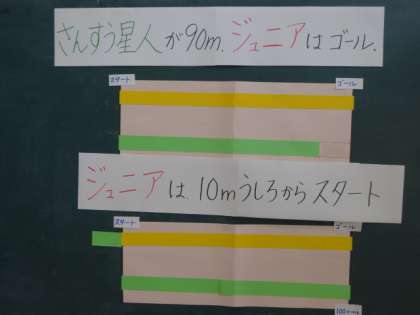 さんすう星人が90m、ジュニアはゴール.
スタート
ゴール
ジュニアは、10mうしろからスタート
スタート
ゴール